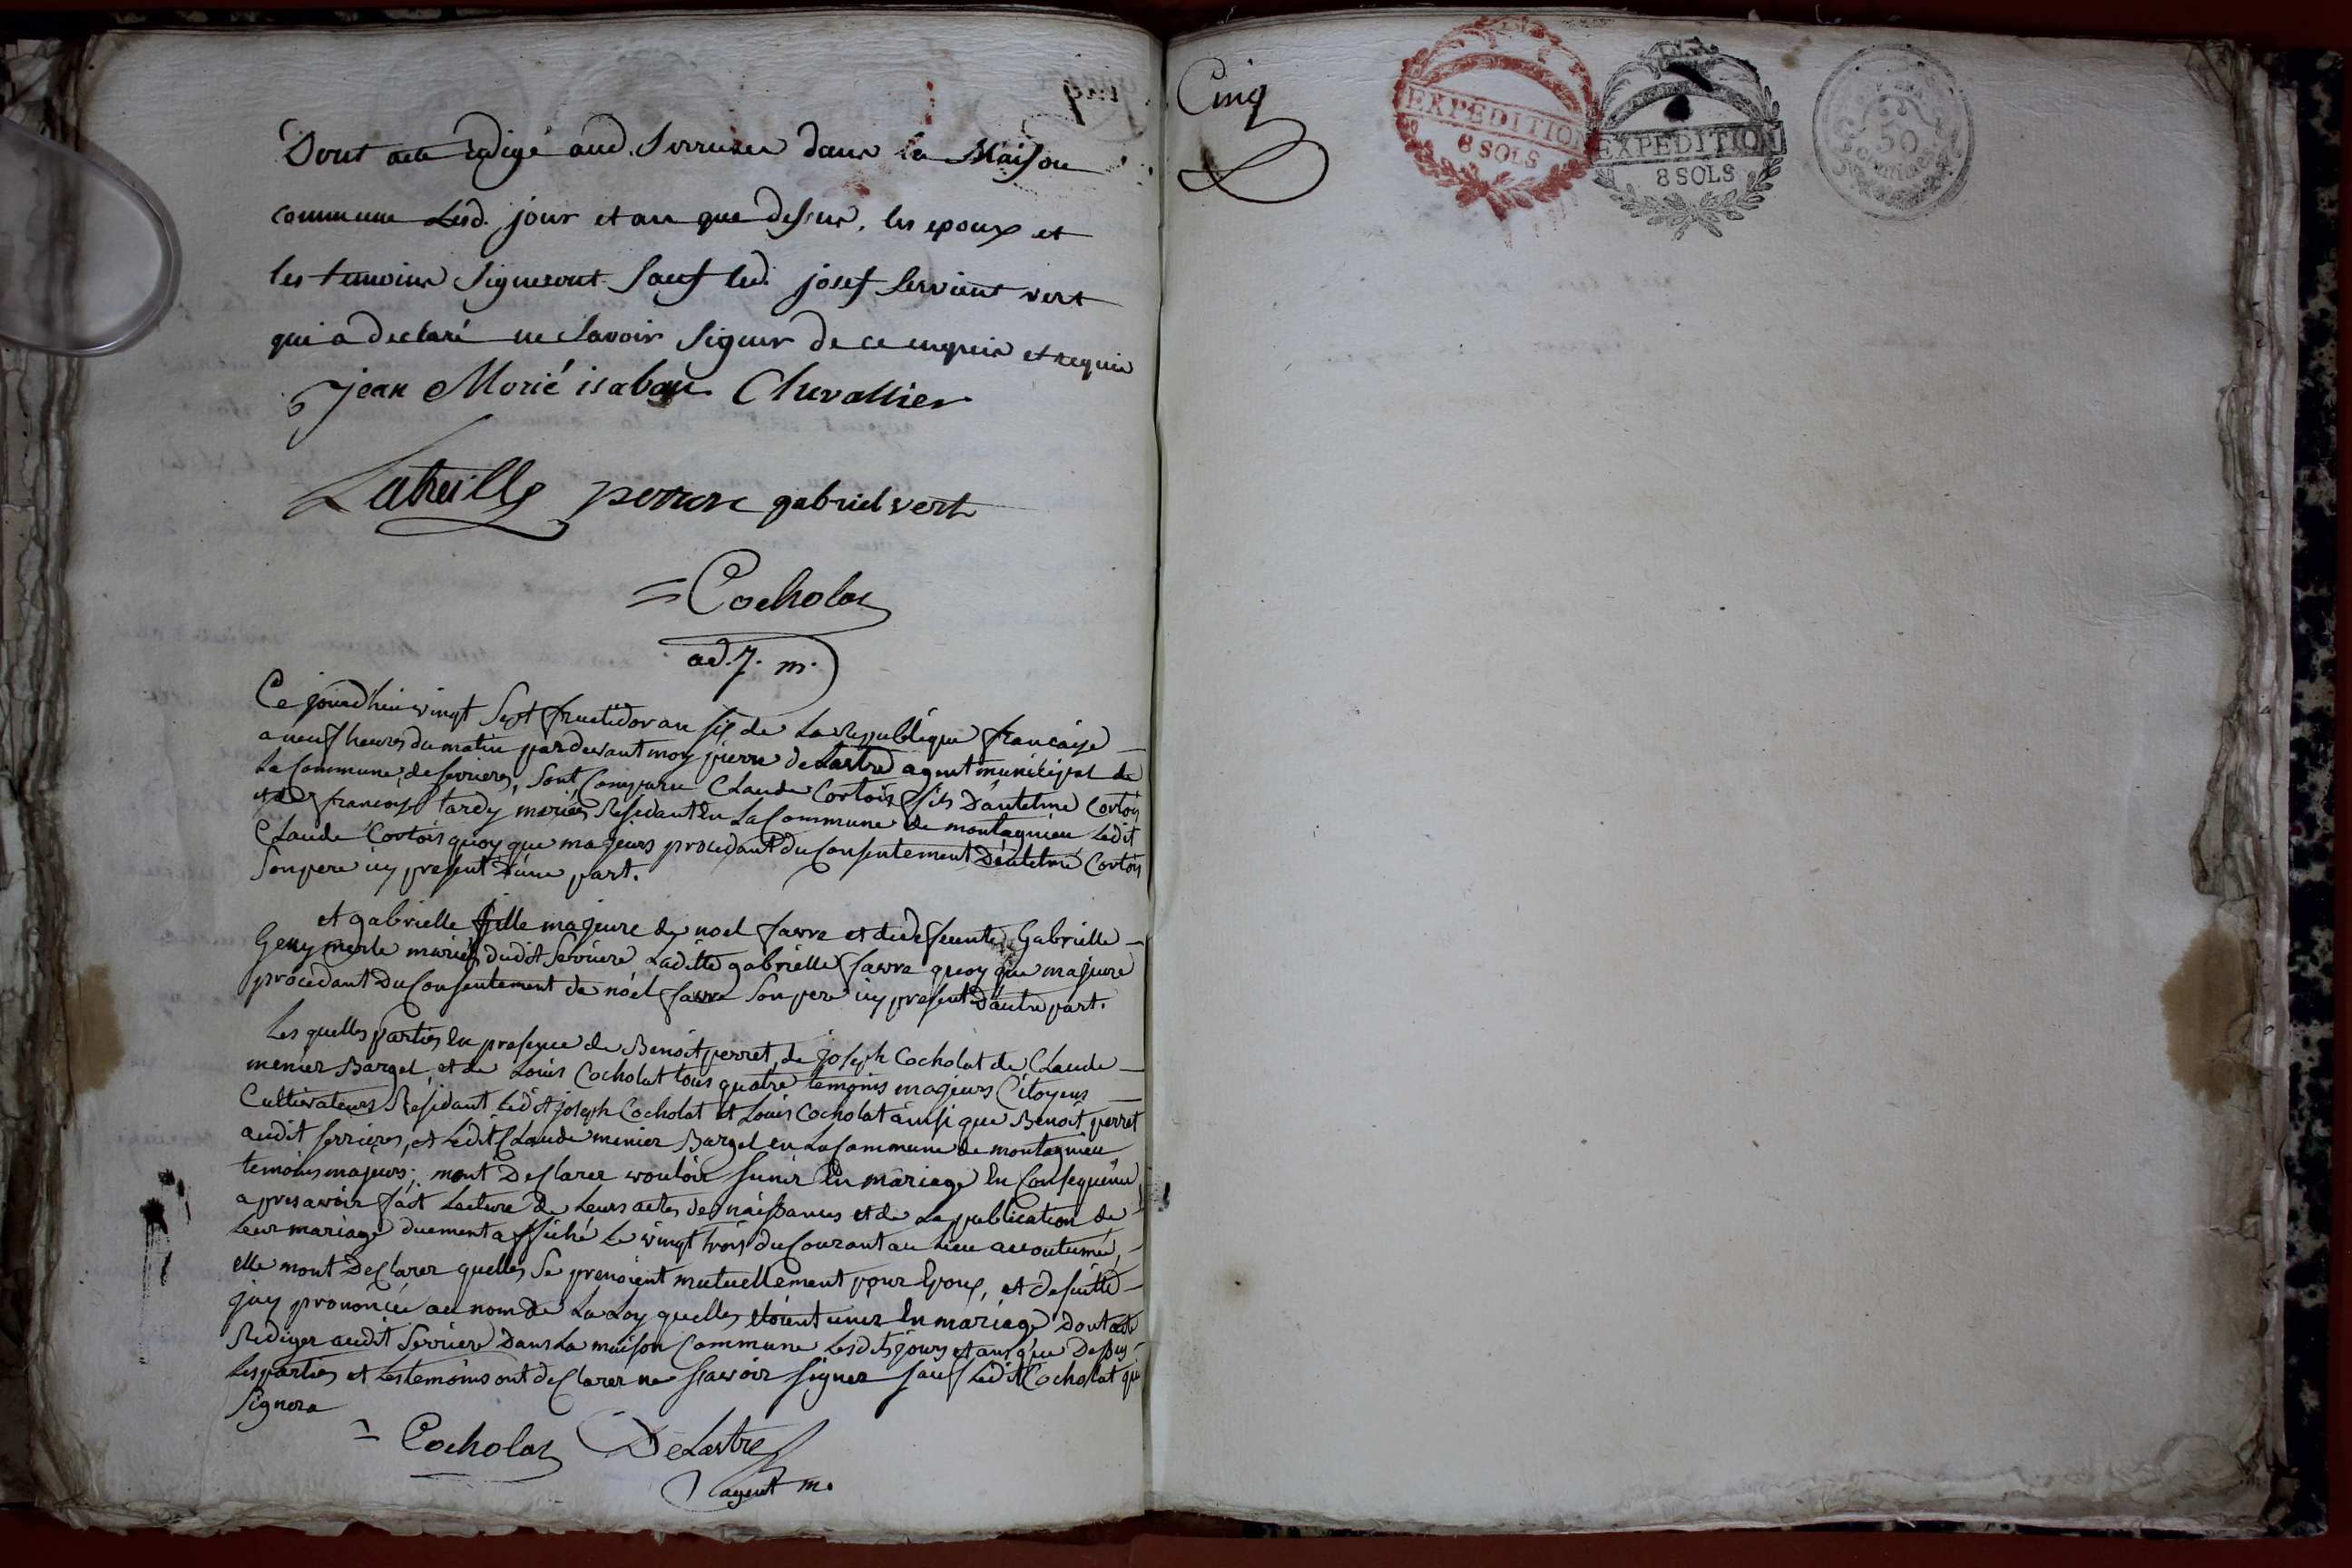 Dont acte redigé aud. Serrieres dans la Maison
commune lesd. jour et an que dessus, les epoux et
les temoins signeront sauf led. josef servient vert
qui a declaré ne savoir signer de ce enquis et requis
jean Morié isabau Chevallier
Latreille perron gabriel vert
= Cocholat
ad. m.
Ce jourd'hui vingt sept fructidor an six de La Republique francaise
a neuf heures du matin pardevant moy pierre de Lastre agent municipal de
La Commune de serrieres, sont Comparu Claude Cortois fils D'antelme Cortois
et de françoise tardy mariés Residant en La Commune de montagnieu Ledit
Claude Cortois quoy que majeurs procedant du Consentement D'antelme Cortois
Son pere icy present D'une part.
et gabrielle fille majeure de noel favre et de deffeunte Gabrielle
Geny merle mariés dudit Serriere Laditte gabrielle favre quoy que majeure
procedant Du Consentement de noël favre Son pere icy present D'autre part.
Les quelles parties en presence de Benoit perret, de joseph Cocholat de Claude
menier Bargel et de Louis Cocholat tous quatre temoins majeurs Citoyens
Cultivateurs Residant Ledit joseph Cocholat et Louis Cocholat ainsi que Benoit perret
audit serrieres, et Ledit Claude menier Bargel en La Commune de montagnieu
temoins majeurs; mont Declaree vouloir sunir En mariage En Consequence
apres avoir fait Lecture de Leurs actes de naissances et de La publication de
Leur mariage duement affiché Le vingt trois du Courant au Lieu accoutumé,
elle mont Declarer quelles Se prenoient mutuellement pour Epoux, et desuitte
jay prononcée au nom de La Loy quelles etoient unies En mariage Dont acte
Rediger audit Serriere Dans La maison Commune Lesdits jours et ans que Dessus
Les parties et Les temoins ont declarer ne scavoir signer sauf Ledit Cocholat qui
Signera
= Cocholat DeLastre
agent m.
Cinq
EXPEDITION
8 SOLS
EXPEDITION
8 SOLS
50
centimes